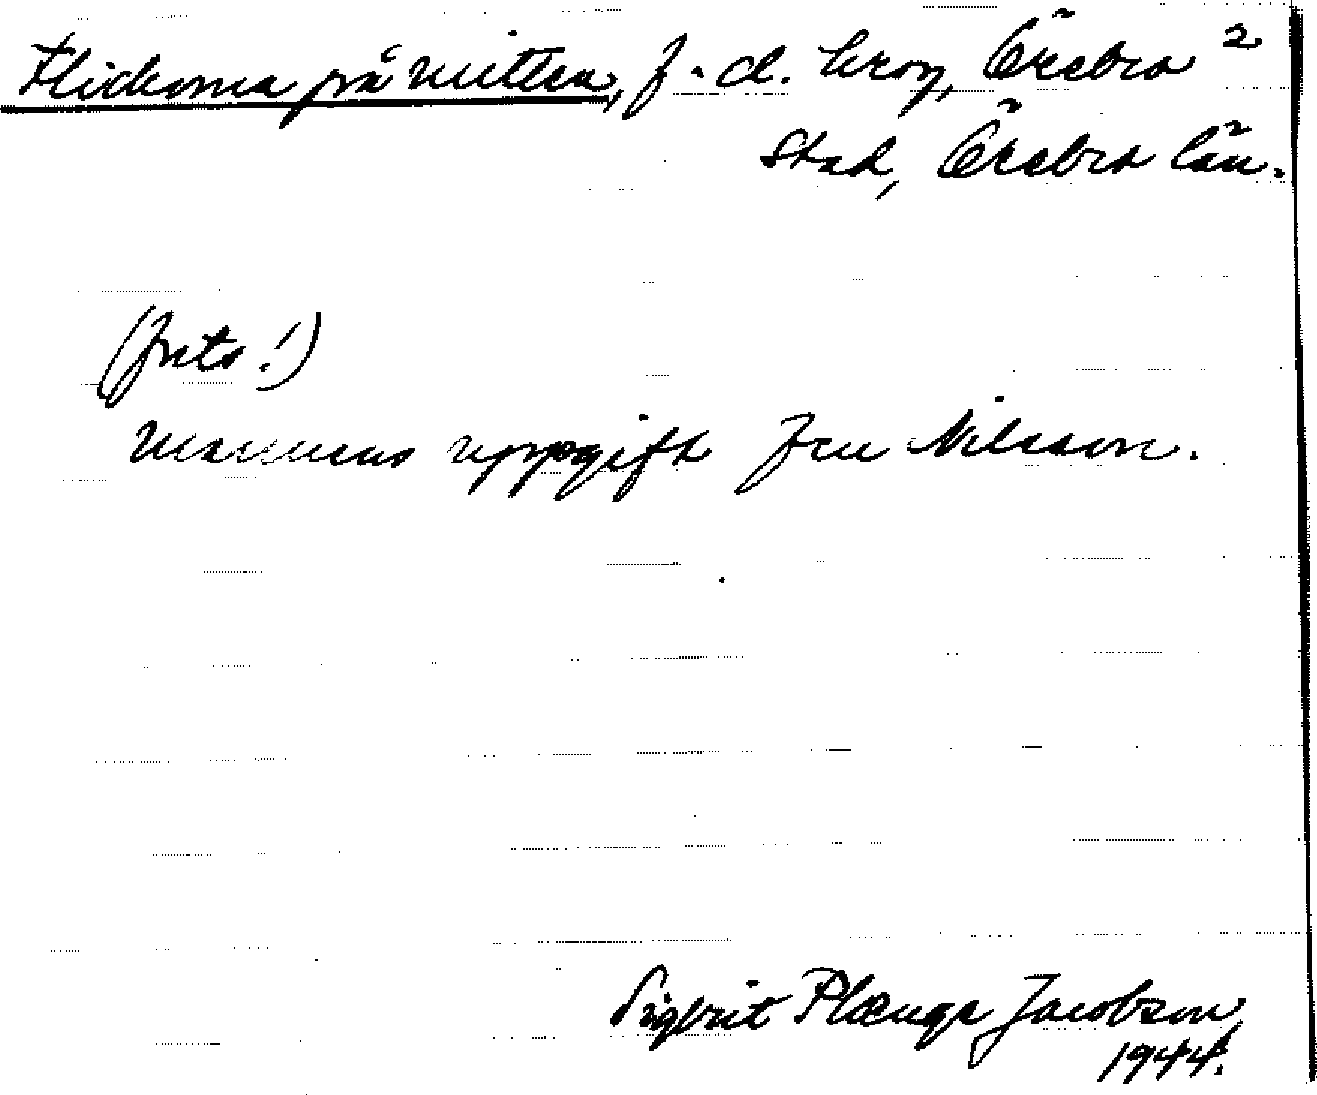 Flickorna på mitten, f.d. krog, Örebro 2
Stad, Örebro län.
(forts!)
Mammas uppgift fru Nilsson.
Sigbrit Plænge Jacobson,
1944.